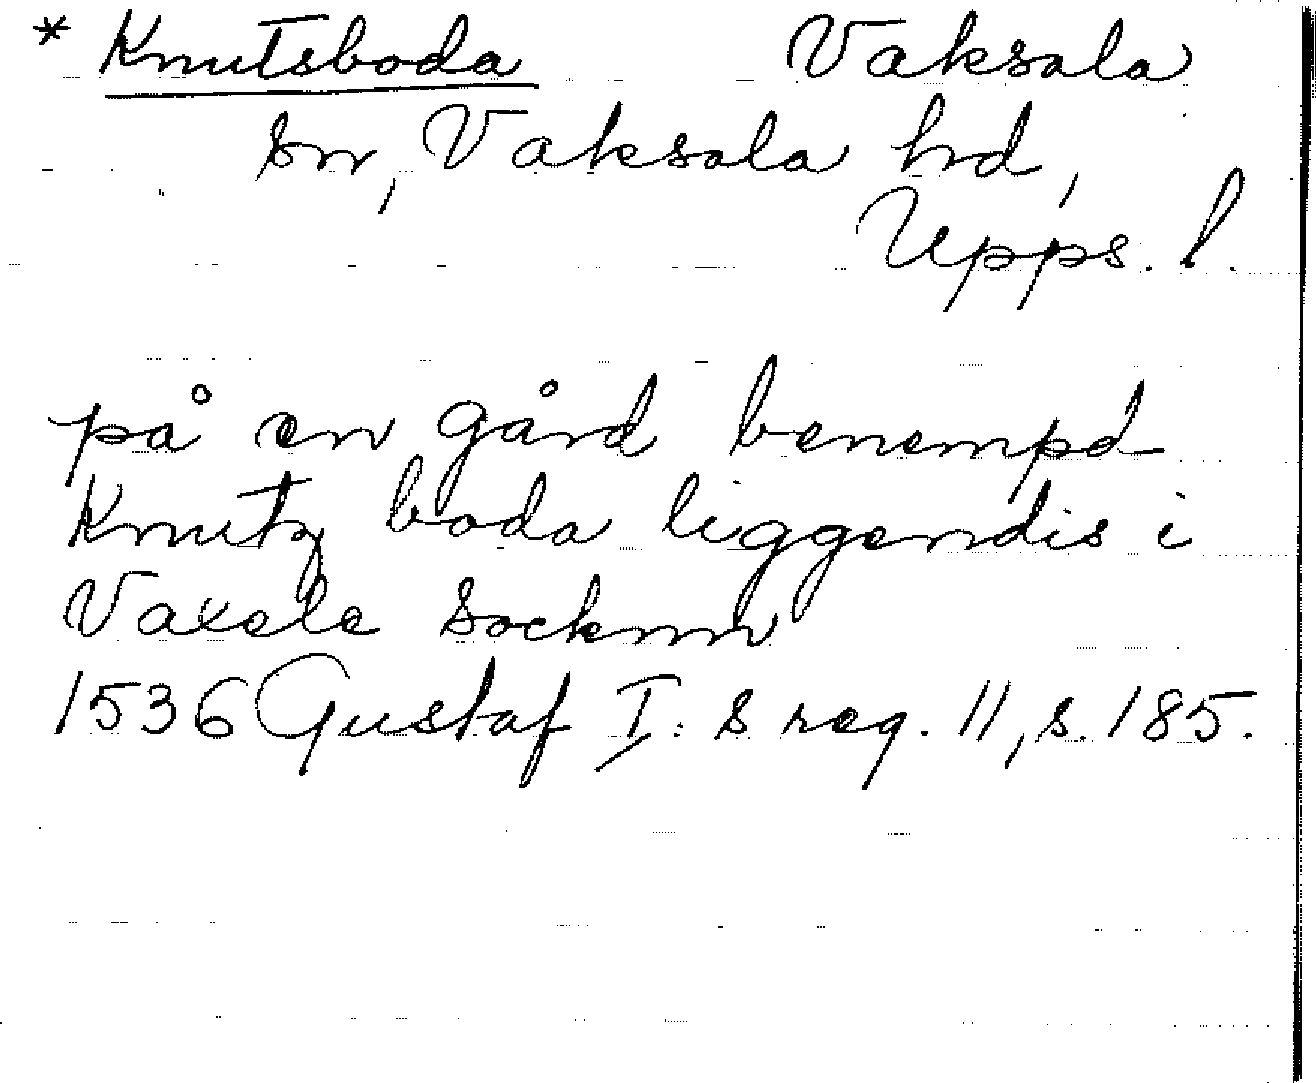 * Knutsboda Vaksala
sn, Vaksala hd,
Upps. l.
på en gård benempd
Knutz boda liggendis i
Vaxele Socknnn
1536 Gustaf I:s reg. 11, s. 185.